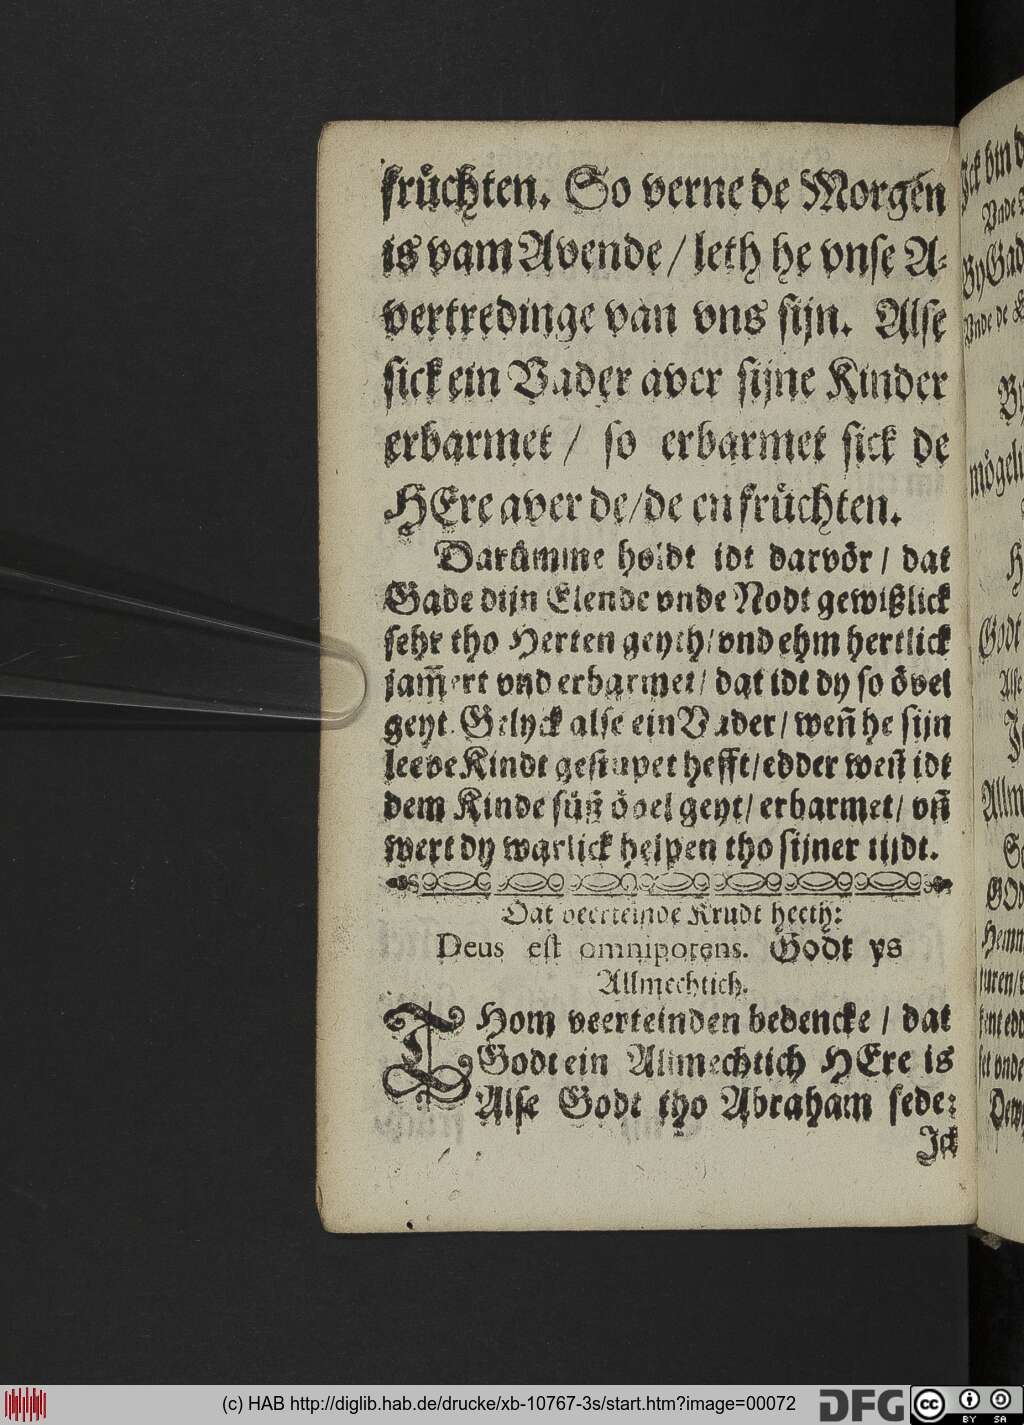 früchten. So verne de Morgen
is vam Avende / leth he vnse A-
vertredinge van vns sijn. Alse
sick ein Vader aver sijne Kinder
erbarmet / so erbarmet sick de
HEre aver de/de en früchten.
Darümme holdt idt darvör / dat
Gade dijn Elende vnde Nodt gewißlick
sehr tho Herten geyth/ vnd ehm hertlick
jam̃ert vnd erbarmet/ dat idt dy so övel
geyt. Gelyck alse ein Vader/ weñ he sijn
leeve Kindt gestupet hefft/edder weñ idt
dem Kinde süß övel geyt/ erbarmet/ vñ
wert dy warlick helpen tho sijner tijdt.
Dat veerteinde Krudt heeth:
Deus est omnipotens. Godt ys
Allmechtich.
THom veerteinden bedencke / dat
Godt ein Allmechtich HEre is
Alse Godt tho Abraham sede:
Ick
Ick bin
Vnde
By Gad
Vnde de
By
mögeli
Godt
Alse
Allm
GOd
Hemm
(c) HAB http://diglib.hab.de/drucke/xb-10767-3s/start.htm?image=00072
DFG
cc
BY SA